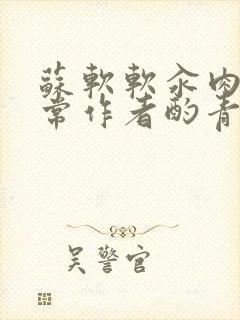 蘇軟軟汆肉
常作者酌青
吴警官